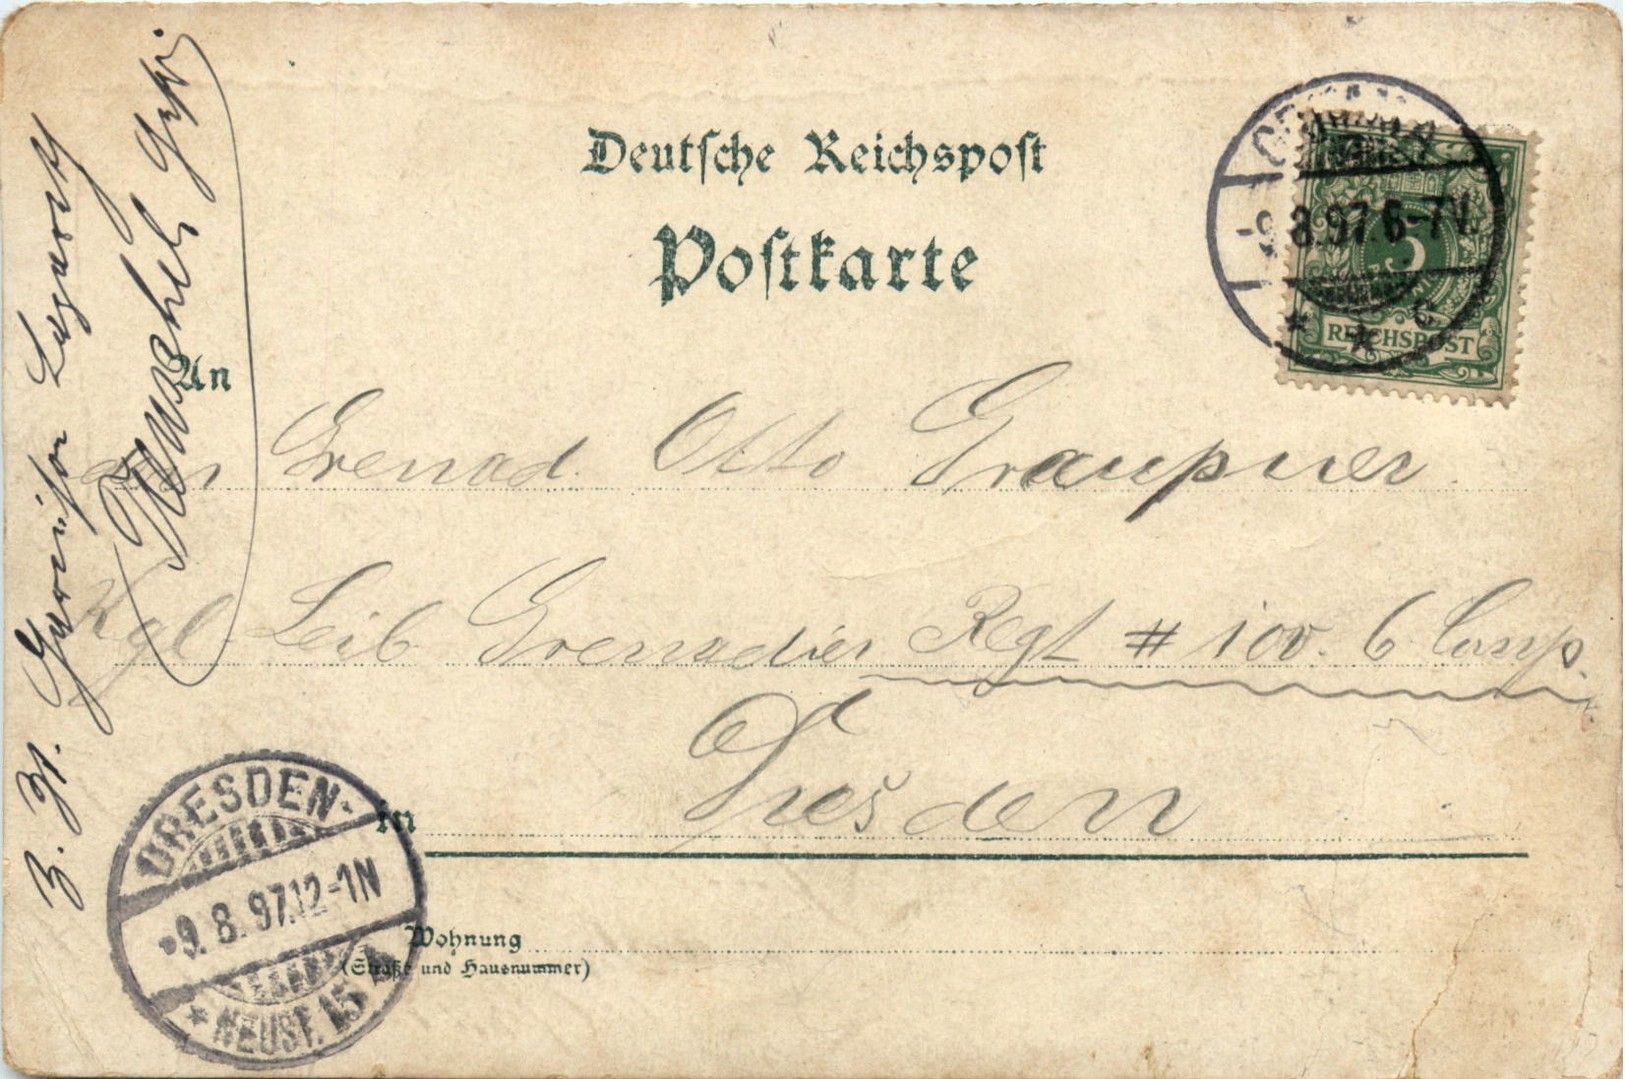 Deutsche Reichspost
Postkarte
An
den Grenad. Otto Graupner
Kgl. Leib Grenadier Regt # 100. 6 Comp.
in Dresden
Wohnung
(Straße und Hausnummer)
z. Zt. Garnison Lazareth
-9.8.97.6-7V.
* * c
5
REICHSPOST
DRESDEN-
-9.8.97.12-1N
* NEUST. 15